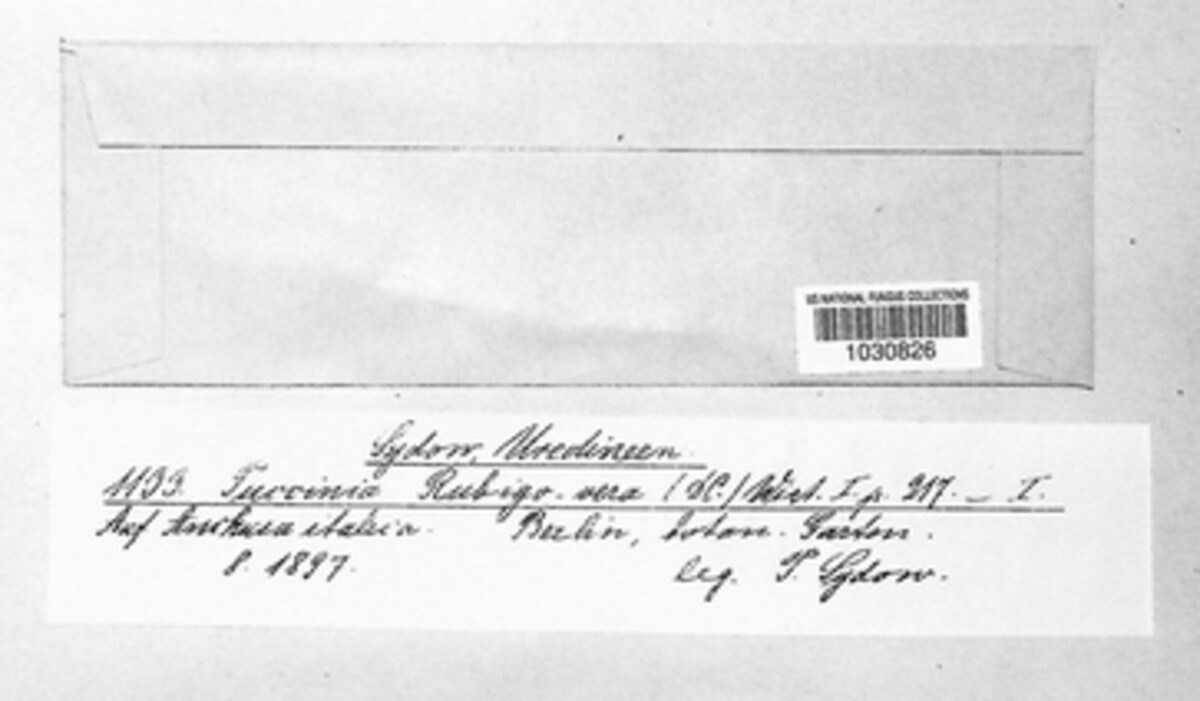 US NATIONAL FUNGUS COLLECTIONS
1030826
Sydow, Uredineen.
1133. Puccinia Rubigo-vera (DC.) Wint. I. p. 217. – I.
Auf Anchusa italica. Berlin, botan. Garten.
8. 1897. leg. P. Sydow.